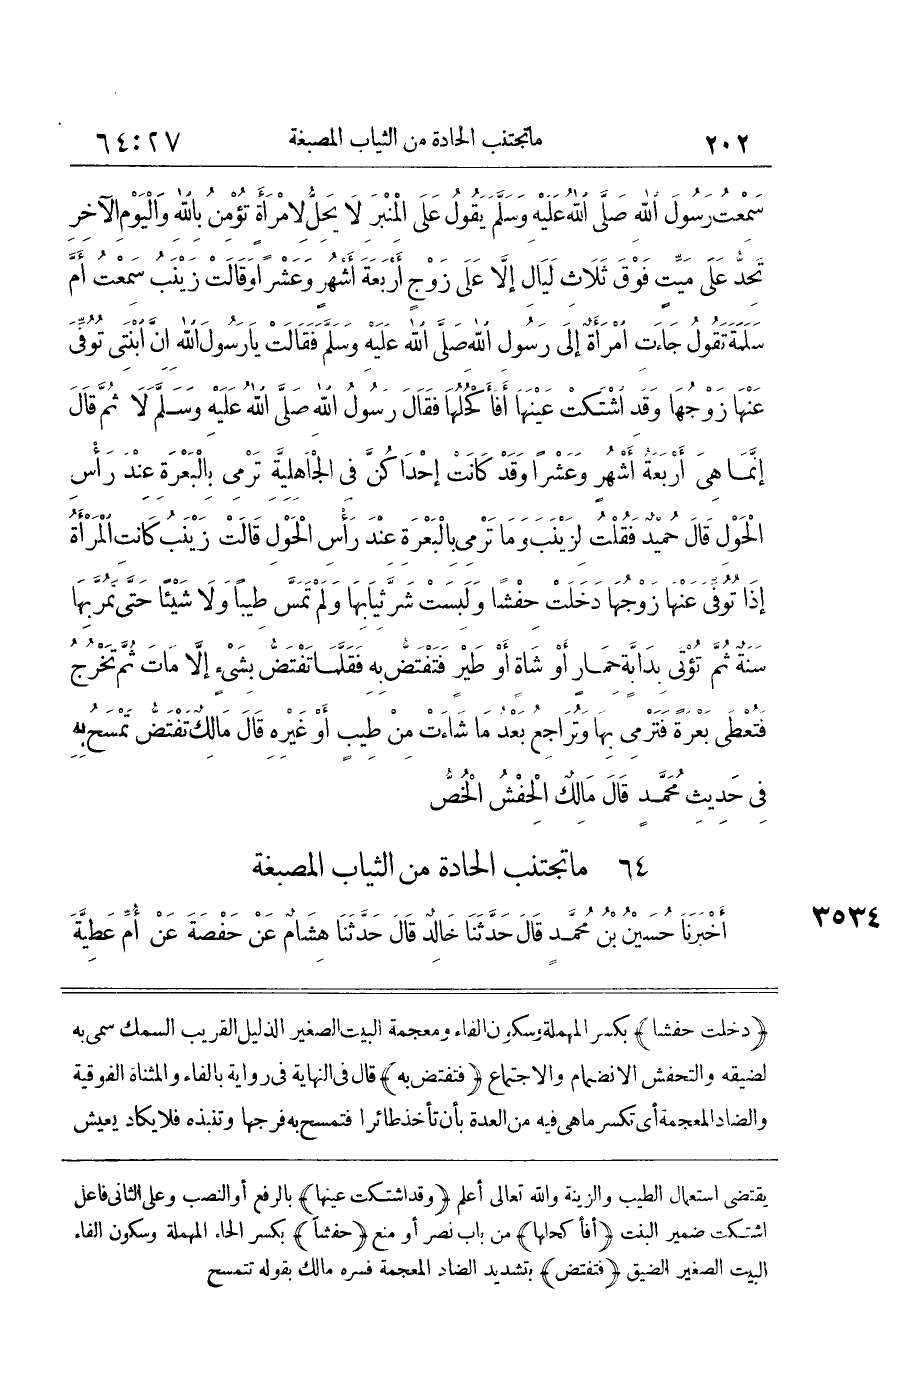 ٢٠٢ ماتجتنب الحادة من الثياب المصبغة ٢٧:٦٤
سَمِعْتُ رَسُولَ اللهِ صَلَّى اللهُ عَلَيْهِ وَسَلَّمَ يَقُولُ عَلَى الْمِنْبَرِ لَا يَحِلُّ لِامْرَأَةٍ تُؤْمِنُ بِاللهِ وَالْيَوْمِ الْآخِرِ
تَحِدُّ عَلَى مَيِّتٍ فَوْقَ ثَلَاثِ لَيَالٍ إِلَّا عَلَى زَوْجٍ أَرْبَعَةَ أَشْهُرٍ وَعَشْرًا وَقَالَتْ زَيْنَبُ سَمِعْتُ أُمَّ
سَلَمَةَ تَقُولُ جَاءَتِ امْرَأَةٌ إِلَى رَسُولِ اللهِ صَلَّى اللهُ عَلَيْهِ وَسَلَّمَ فَقَالَتْ يَارَسُولَ اللهِ إِنَّ ابْنَتِي تُوُفِّيَ
عَنْهَا زَوْجُهَا وَقَدِ اشْتَكَتْ عَيْنَهَا أَفَأَكْحُلُهَا فَقَالَ رَسُولُ اللهِ صَلَّى اللهُ عَلَيْهِ وَسَلَّمَ لَا ثُمَّ قَالَ
إِنَّمَا هِيَ أَرْبَعَةُ أَشْهُرٍ وَعَشْرًا وَقَدْ كَانَتْ إِحْدَاكُنَّ فِي الْجَاهِلِيَّةِ تَرْمِي بِالْبَعْرَةِ عِنْدَ رَأْسِ
الْحَوْلِ قَالَ حُمَيْدٌ فَقُلْتُ لِزَيْنَبَ وَمَا تَرْمِي بِالْبَعْرَةِ عِنْدَ رَأْسِ الْحَوْلِ قَالَتْ زَيْنَبُ كَانَتِ الْمَرْأَةُ
إِذَا تُوُفِّيَ عَنْهَا زَوْجُهَا دَخَلَتْ حِفْشًا وَلَبِسَتْ شَرَّ ثِيَابِهَا وَلَمْ تَمَسَّ طِيبًا وَلَا شَيْئًا حَتَّى تَمُرَّ بِهَا
سَنَةٌ ثُمَّ تُؤْتَى بِدَابَّةٍ حِمَارٍ أَوْ شَاةٍ أَوْ طَيْرٍ فَتَفْتَضُّ بِهِ فَقَلَّمَا تَفْتَضُّ بِشَيْءٍ إِلَّا مَاتَ ثُمَّ تَخْرُجُ
فَتُعْطَى بَعْرَةً فَتَرْمِي بِهَا وَتُرَاجِعُ بَعْدُ مَا شَاءَتْ مِنْ طِيبٍ أَوْ غَيْرِهِ قَالَ مَالِكٌ تَفْتَضُّ تَمْسَحُ بِهِ
فِي حَدِيثِ مُحَمَّدٍ قَالَ مَالِكٌ الْحِفْشُ الْخُصُّ
٦٤ ماتجتنب الحادة من الثياب المصبغة
٣٥٣٤ أَخْبَرَنَا حُسَيْنُ بْنُ مُحَمَّدٍ قَالَ حَدَّثَنَا خَالِدٌ قَالَ حَدَّثَنَا هِشَامٌ عَنْ حَفْصَةَ عَنْ أُمِّ عَطِيَّةَ
﴿دخلت حفشا﴾ بكسر المهملة وسكون الفاء ومعجمة البيت الصغير الذليل القريب السمك سمى به
لضيقه والتحفش الانضمام والاجتماع ﴿فتفتض به﴾ قال فى النهاية فى رواية بالفاء والمثناة الفوقية
والضاد المعجمة أى تكسر ماهى فيه من العدة بأن تأخذ طائرا فتمسح به فرجها وتنبذه فلا يكاد يعيش
يقتضى استعمال الطيب والزينة والله تعالى أعلم ﴿وقد اشتكت عينها﴾ بالرفع أو النصب وعلى الثانى فاعل
اشتكت ضمير البنت ﴿أفأ كحلها﴾ من باب نصر أو منع ﴿حفشاً﴾ بكسر الحاء المهملة وسكون الفاء
البيت الصغير الضيق ﴿فتفتض﴾ بتشديد الضاد المعجمة فسره مالك بقوله تتمسح